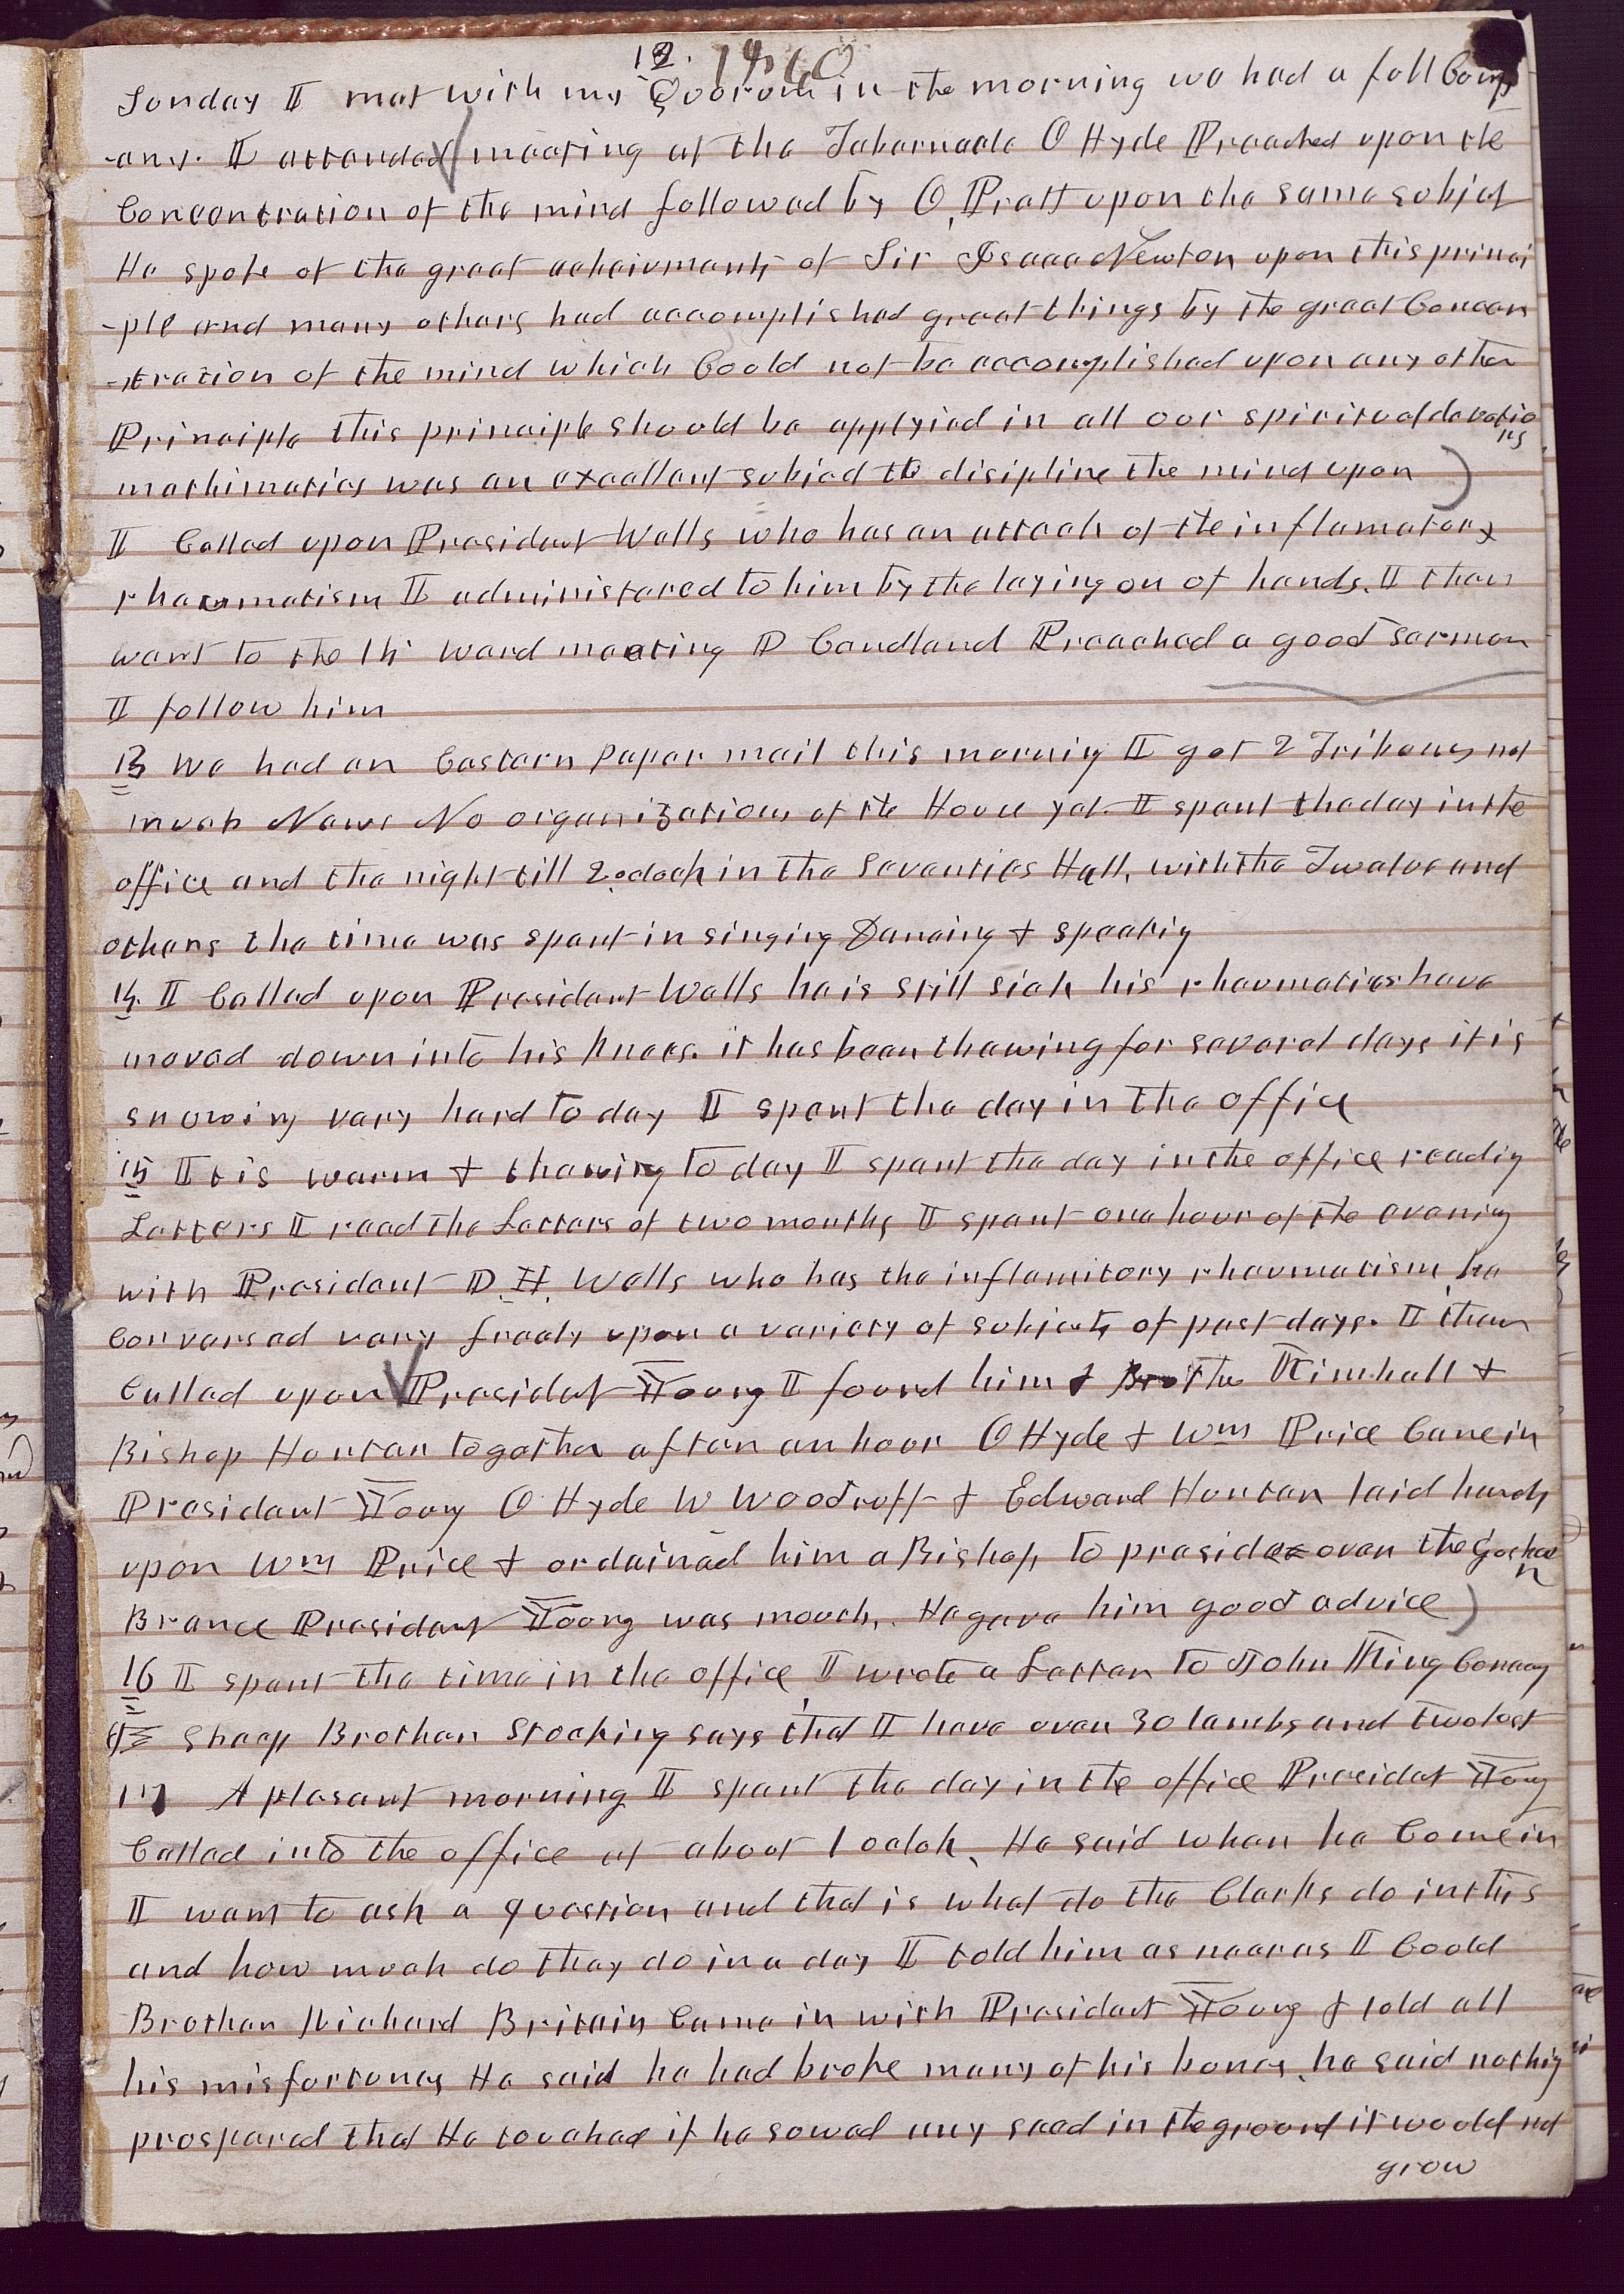 12. 1860
Sunday I met with my Quorum in the morning we had a full Comp
-any. I attended meeting at the Tabernacle O Hyde Preached upon the
Concentration of the mind followed by O, Pratt upon the same subject
He spoke of the great acheivments of Sir Isaac Newton upon this princi
-ple and many others had accomplished great things by the great Concen
-tration of the mind which Could not be accomplished upon any other
Principle this principle should be applyied in all our spiritual devotio
ns
mathimatics was an excellent subject to disipline the mind upon )
I Called upon President Wells who has an attack of the inflamatory
rheumatism I administered to him by the laying on of hands. I then
went to the 14 ward meeting D Candland Preached a good sermon
I follow him
13 We had an Eastern paper mail this mornig I got 2 Tribunes not
much News No organizations of the House yet. I spent the day in the
office and the night till 2 oclock in the Seventies Hall, with the Twelve and
others the time was spent in singing Dancing & speakig
14. I Called upon President Wells he is still sick his rheumatics have
moved down into his knees. it has been thawing for several days it is
snowing very hard to day I spent the day in the office
15 It is warm & thawing to day I spent the day in the office readig
Letters I read the Letters of two months I spent one hour of the evening
with President D. H. Wells who has the inflamitory rheumatism he
Conversed very freely upon a variety of subjects of past days. I then
Called upon Presidet Young I found him & Brother Kimball &
Bishop Hunter together after an hour O Hyde & Wm Price Came in
President Young O Hyde W Woodruff & Edward Hunter laid hands
upon Wm Price & ordained him a Bishop to preside over the Goshe
n
Brance President Young was mouth. He gave him good advice )
16 I spent the time in the office I wrote a Letter to John King Concerg
Sheep Brother Stocking says that I have over 30 lambs and two lost
17 A plesant morning I spent the day in the office Presidet Young
Called into the office at about 1 oclok, He said when he Come in
I want to ask a question and that is what do the Clerks do in this
and how much do they do in a day I told him as near as I Could
Brother Richard Britain Came in with President Young & told all
his misfortunes He said he had broke many of his bones, he said nothig
prospered that He touched if he sowed any seed in the ground it would not
grow